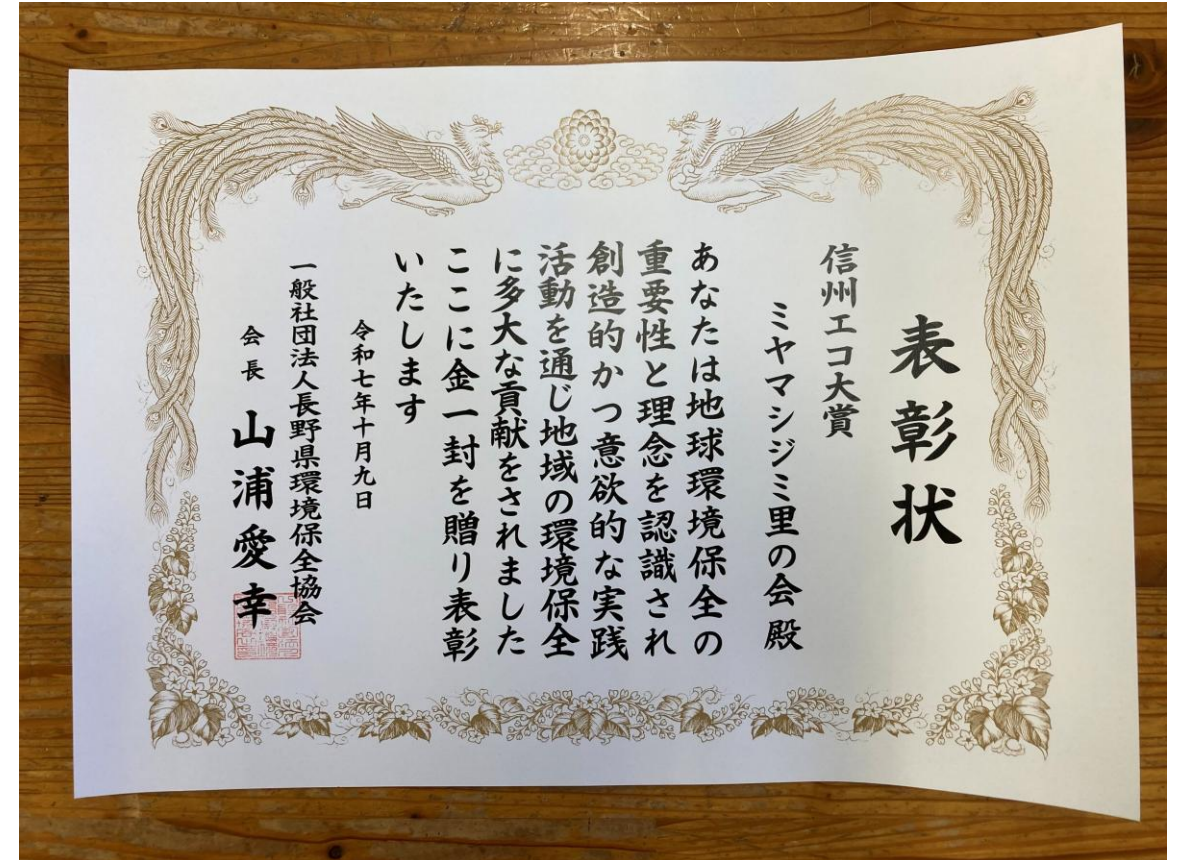 表彰状
信州エコ大賞
ミヤマシジミ里の会 殿
あなたは地球環境保全の
重要性と理念を認識され
創造的かつ意欲的な実践
活動を通じ地域の環境保全
に多大な貢献をされました
ここに金一封を贈り表彰
いたします
令和七年十月九日
一般社団法人長野県環境保全協会
会長 山浦愛幸